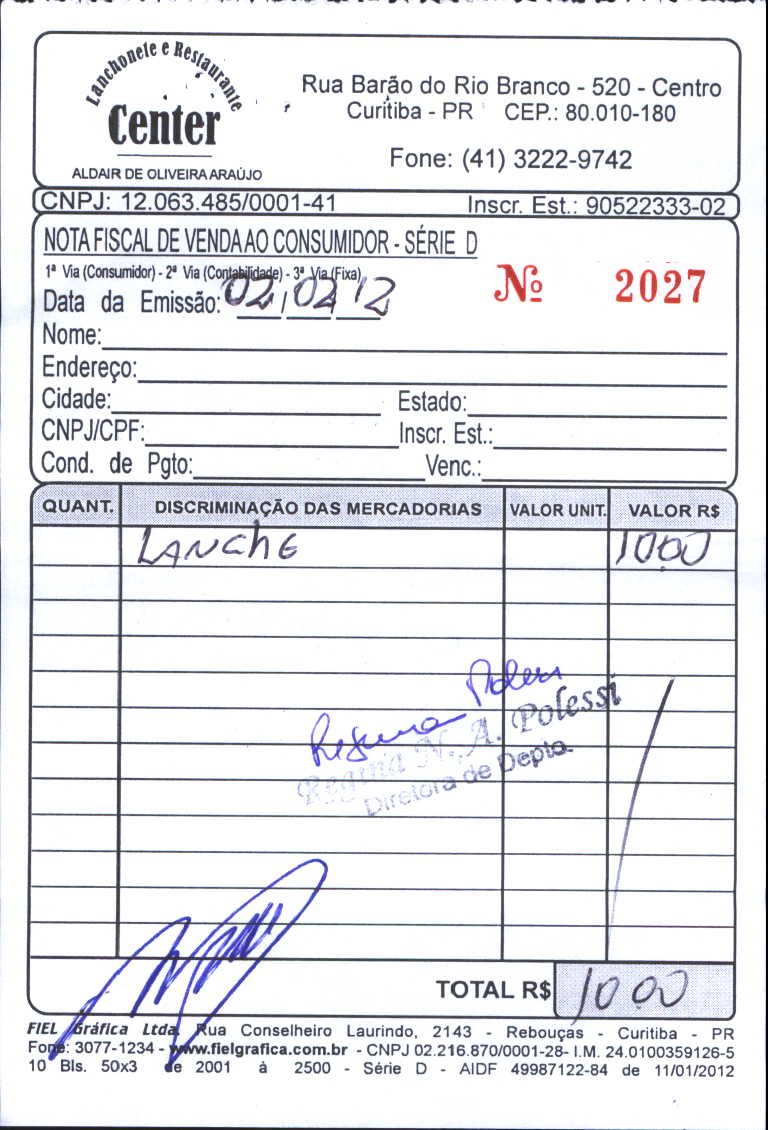 Lanchonete e Restaurante
Center
ALDAIR DE OLIVEIRA ARAÚJO
Rua Barão do Rio Branco - 520 - Centro
Curitiba - PR CEP.: 80.010-180
Fone: (41) 3222-9742
CNPJ: 12.063.485/0001-41 Inscr. Est.: 90522333-02
NOTA FISCAL DE VENDA AO CONSUMIDOR - SÉRIE D
1ª Via (Consumidor) - 2ª Via (Contabilidade) - 3ª Via (Fixa)
Data da Emissão: 02/02 12 Nº 2027
Nome:
Endereço:
Cidade: Estado:
CNPJ/CPF: Inscr. Est.:
Cond. de Pgto: Venc.:
QUANT. DISCRIMINAÇÃO DAS MERCADORIAS VALOR UNIT. VALOR R$
LANCHE 10.00
Regina Poless
Regina N. A. Polessi
Diretora de Depto.
TOTAL R$ 10.00
FIEL Gráfica Ltda. Rua Conselheiro Laurindo, 2143 - Rebouças - Curitiba - PR
Fone: 3077-1234 - www.fielgrafica.com.br - CNPJ 02.216.870/0001-28- I.M. 24.0100359126-5
10 Bls. 50x3 de 2001 à 2500 - Série D - AIDF 49987122-84 de 11/01/2012